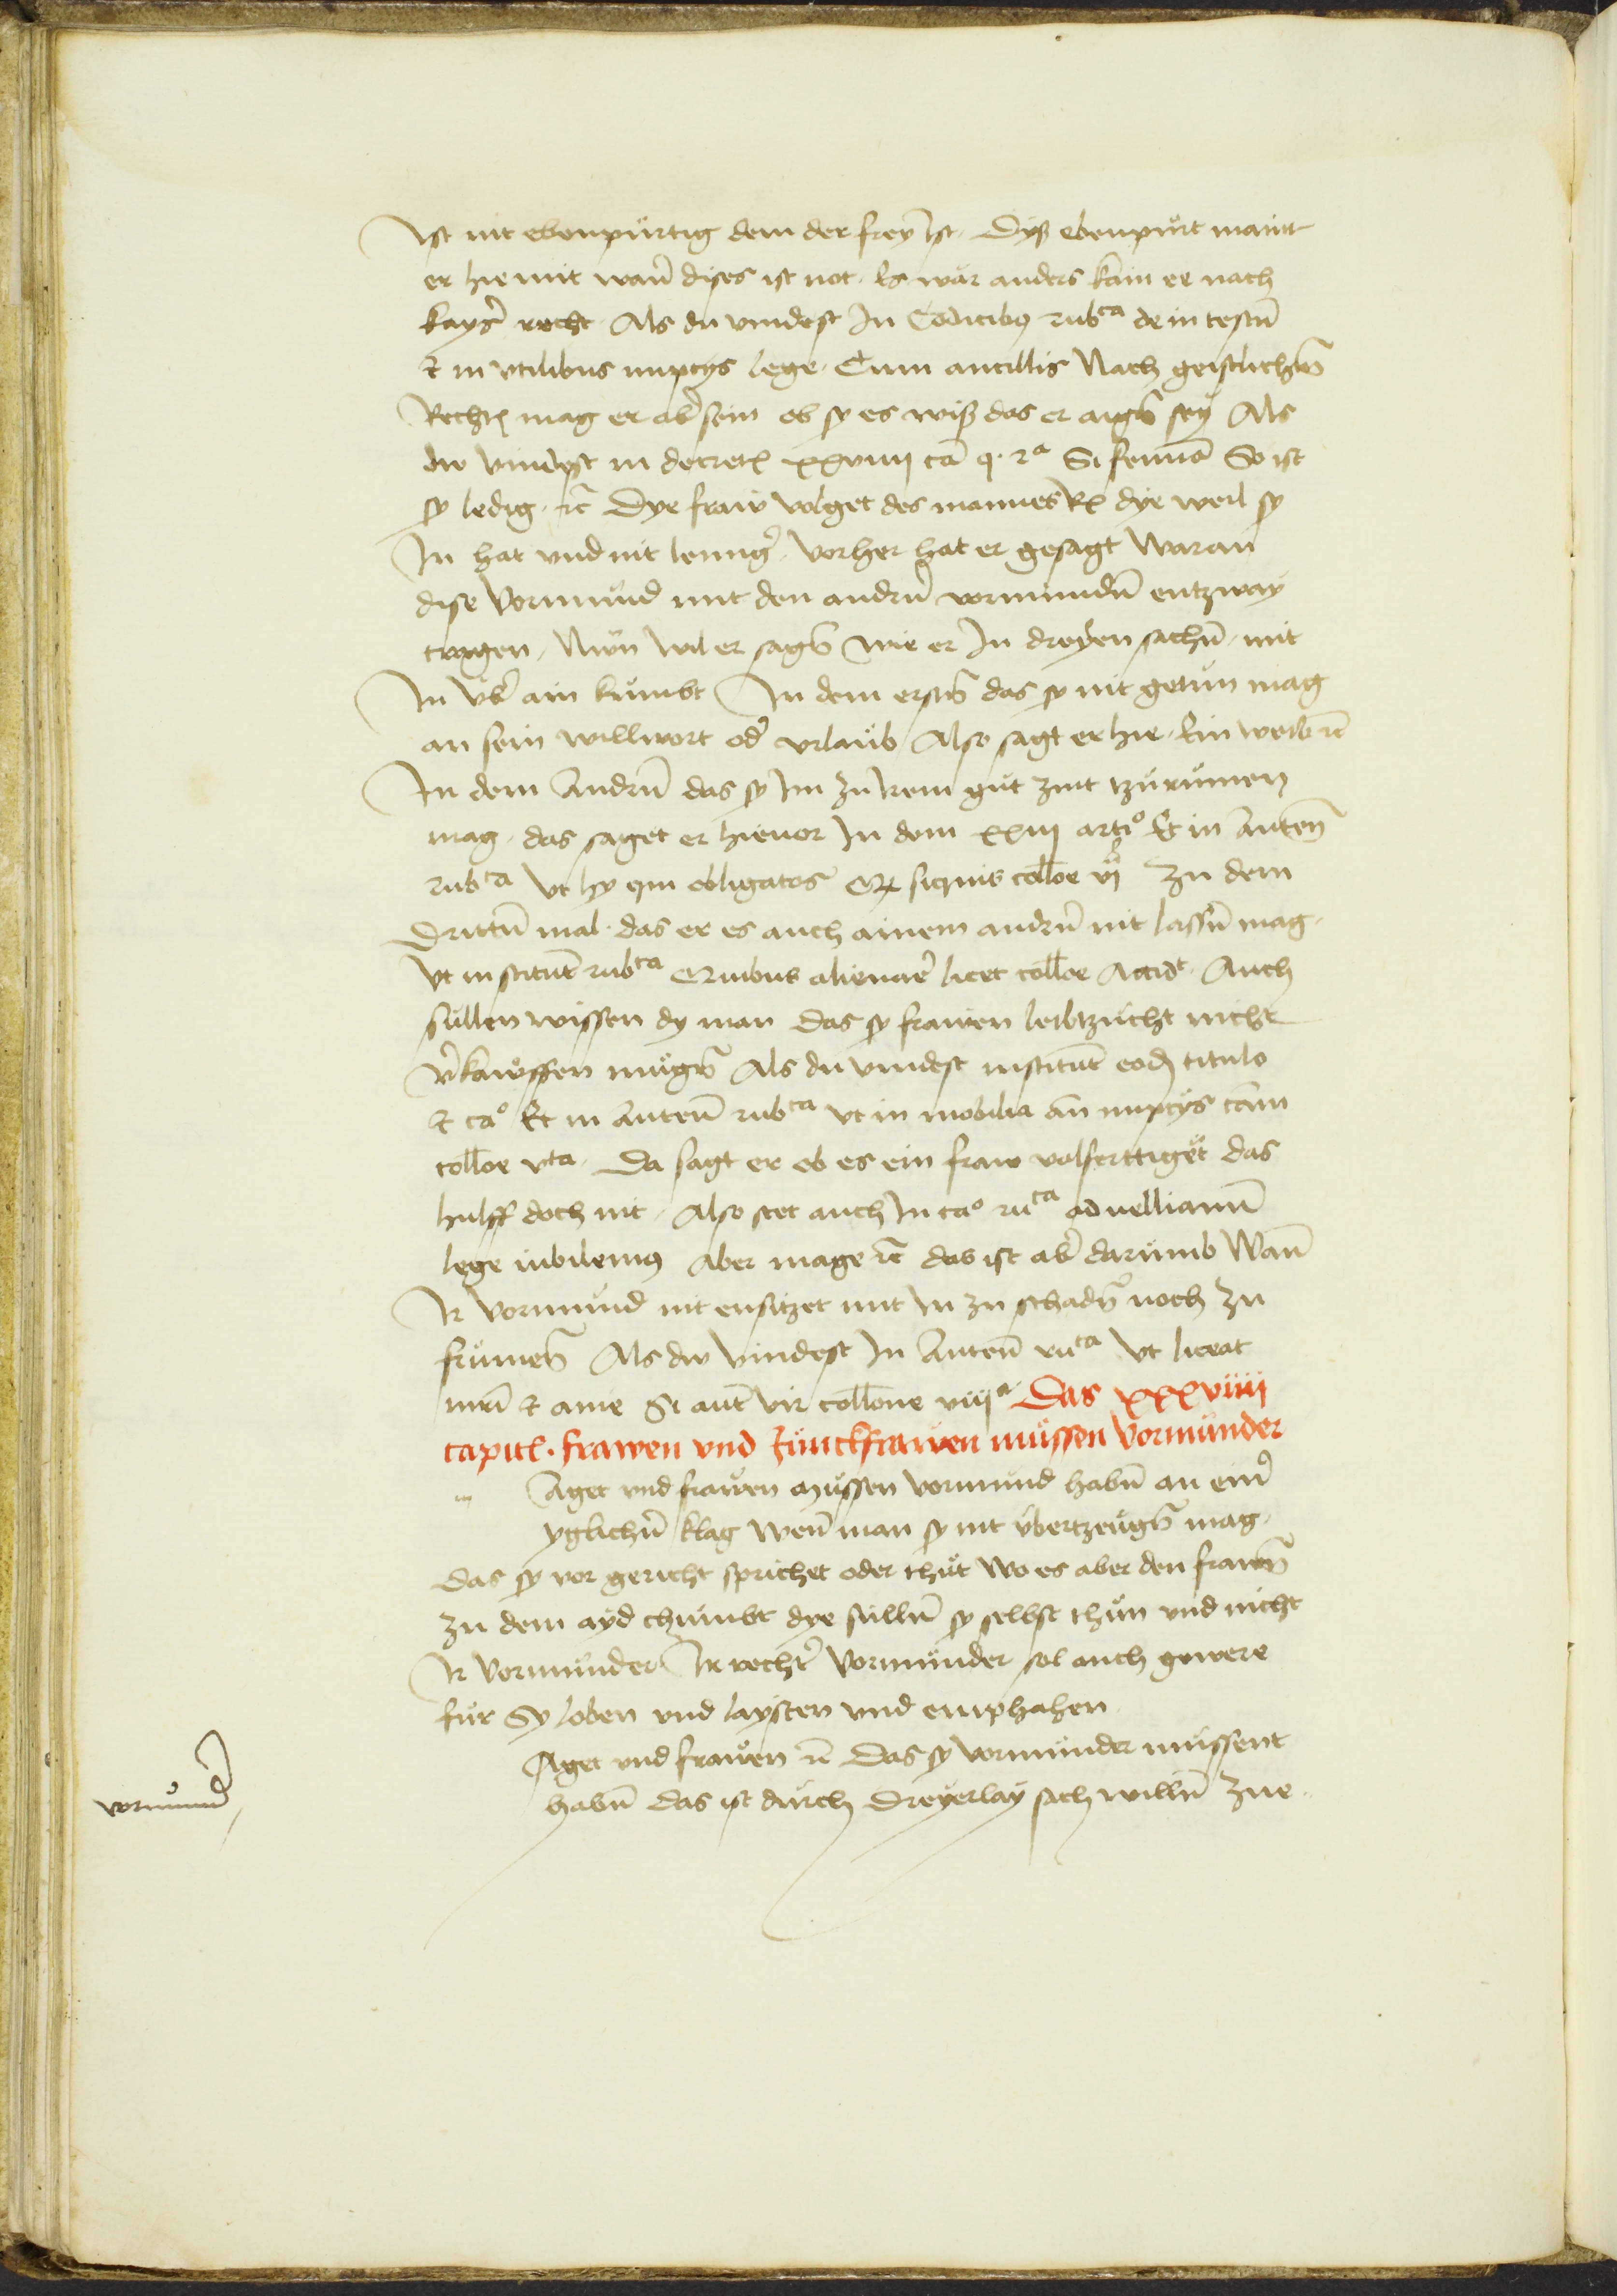 Ist nit ebenpürtig dem der frey Ist. Dyß ebenpürt maint
er hie mit wan̄ dises ist not. Es wär anders kain ee nach
kaysr̄ recht Als du vindest In Codicibus rubca de in testū
et in vtilibus nupcys lege. Cum ancillis Nach geistlichen̄
Rechten mag er abr̄ sein ob sy es wiß das er aigen̄ sey Als
dw vindest in decretis xxviiij cā q. 2a Si femīa So ist
sy ledig. rc̄ Dye fraw volget des mannes Rn̄ dye weil sy
In hat vnd nit lenngr̄. Vorher hat er gesagt Waran
dise Vormund mit den andrn̄ vormunden̄ entzway
trugen, Nun wil er sagn̄ wie er In dreyen sachn̄. mit
In vbr̄ ain kumbt In dem ersten̄ das sy nit getun mag
an sein willwort odr̄ vrlaub Also sagt er hie. Ein weib rc̄
In dem Andrn̄ das sy Im zu irem gut znit tzurumen
mag. das saget er hieuor In dem xxiij artio Et in Auten̄
rubca Vt hy qui obligatos siquis colloe vj zu dem
Dritten̄ mal. das er es auch ainem andrn̄ nit lassn̄ mag.
Vt institut̄ rubca Quibus alienar̄e licet colloe Accidt. Auch
sullen wissen dy man das sy frawen leibtzucht nicht
vr̄kawffen mugn̄ Als du vindest institut̄ eodn̄ titulo
et cao Et in Auten̄ rubca vt in mobilia an̄ nupcys cām
colloe vta. Da sagt er ob es ein fraw volferttiget das
hulff doch nit. Also stet auch In cao ruca ad uellianū
lege iubilemus Aber mage rc̄ das ist abr̄ darumb Wan̄
Ir Vormund nit ensitzet mit In zu schadn̄ noch zu
frumen̄ Als dw vindest In Auten̄ ruca Vt liceat
mr̄i et auie Si aut̄ vir collone viija Das xxxviiij
capitl. Frawen vnd Junckfrawen müssen Vormünder
Aget vnd frawen müssen vormund habn̄ an einr̄
yglichn̄ klag Wen̄ man sy nit übertzeugn̄ mag.
Das sy vor gericht sprichet oder thut Wo es aber den frawen̄
zu dem ayd chumbt dye sullen̄ sy selbst thun vnd nicht
Ir Vormunder. Ir rechtr̄ Vormunder sol auch gewere
fur Sy loben vnd laysten vnd emphahen
Aget vnd frawen rc̄ Das sy Vormunder mussent
habn̄ das ist durch dreyerlay sach willn̄ zue..
vormund